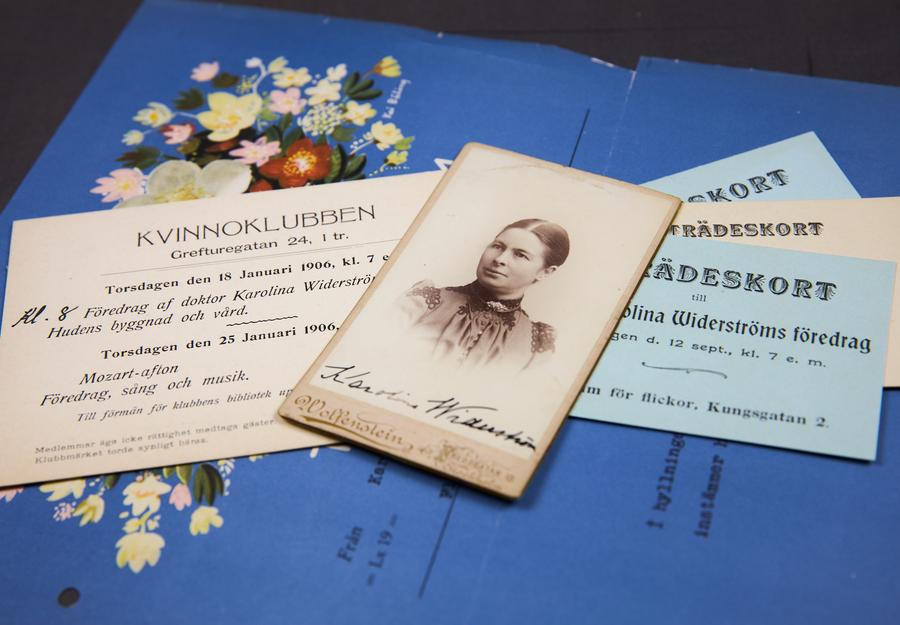 KVINNOKLUBBEN
Grefturegatan 24, 1 tr.
Torsdagen den 18 Januari 1906, kl. 7 e
Kl. 8 Föredrag af doktor Karolina Widerströ
Hudens byggnad och vård.
Torsdagen den 25 Januari 1906,
Mozart-afton
Föredrag, sång och musik.
Till förmån för klubbens bibliotek up
Medlemmar äga icke rättighet medtaga gäster.
Klubbmärket torde synligt bäras.
Karolina Widerström
Wolfenstein
SKORT
TRÄDESKORT
ÄDESKORT
till
olina Widerströms föredrag
gen d. 12 sept., kl. 7 e. m.
m för flickor, Kungsgatan 2.
Från
— La 19 —
Kar
† hyllning
instämmer